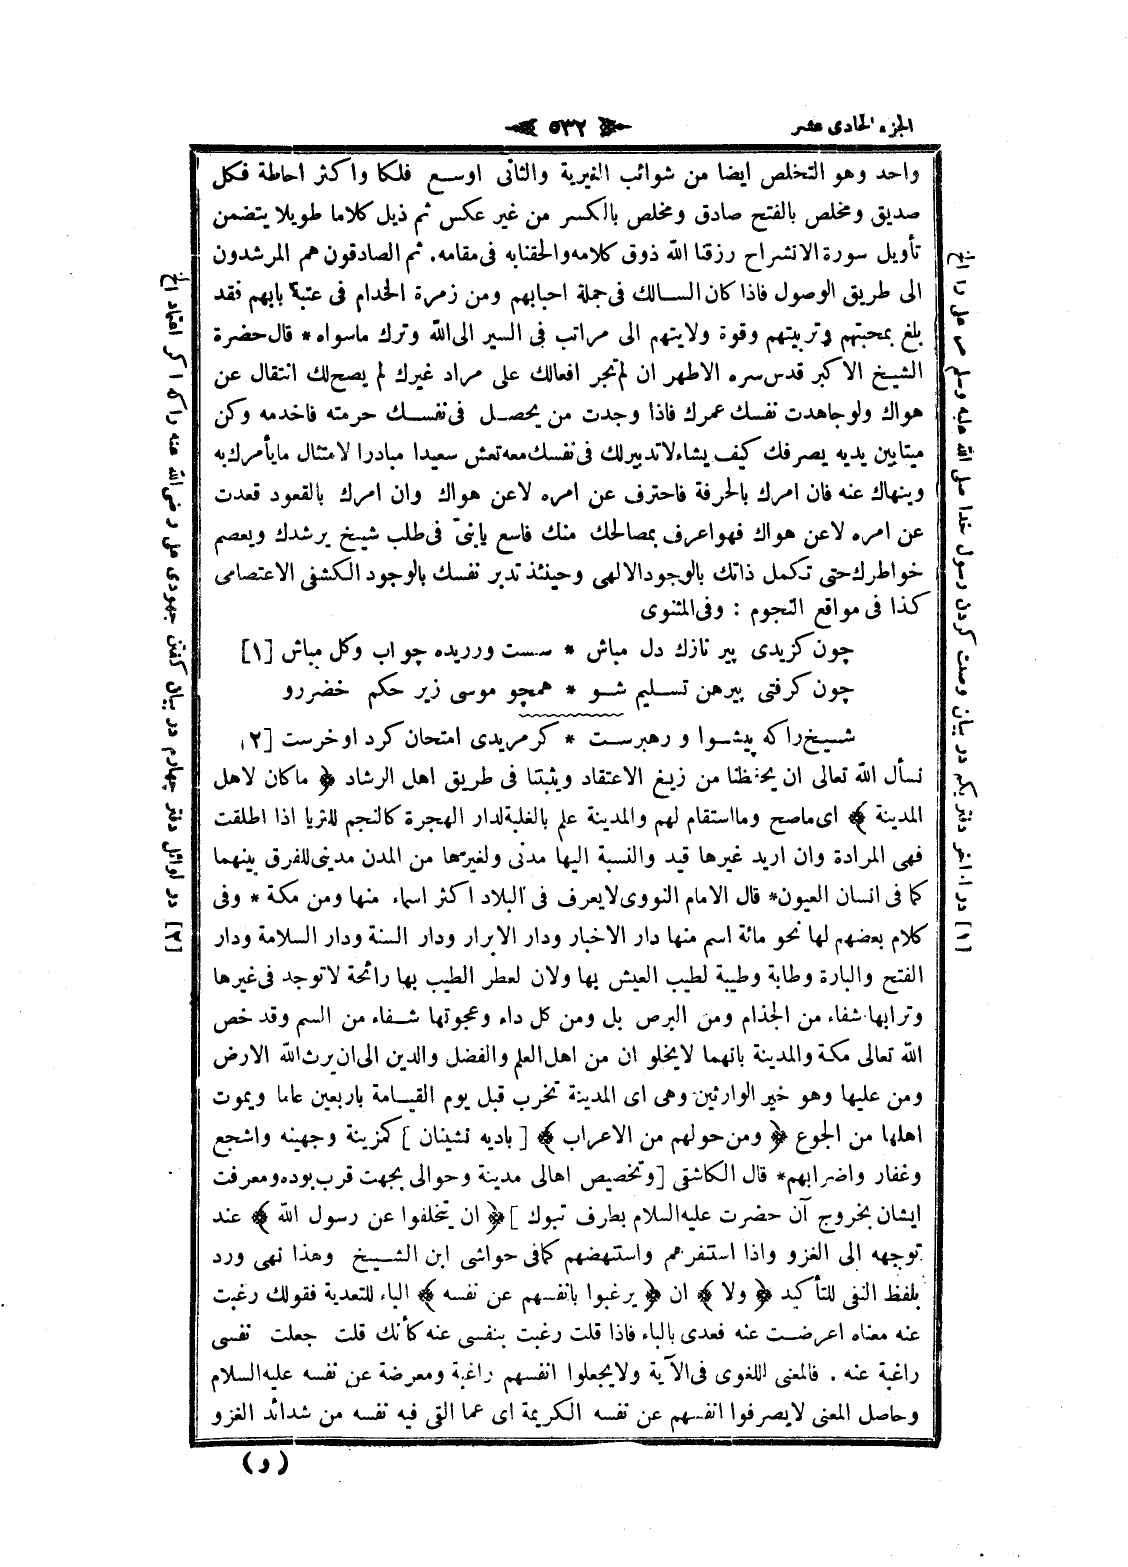 الجزء الحادى عشر
٥٣٢
واحد وهو التخلص ايضا من شوائب الغيرية والثانى اوسع فلكا واكثر احاطة فكل
صديق ومخلص بالفتح صادق ومخلص بالكسر من غير عكس ثم ذيل كلاما طويلا يتضمن
تأويل سورة الانشراح رزقنا الله ذوق كلامه والحقنابه فى مقامه. ثم الصادقون هم المرشدون
الى طريق الوصول فاذا كان السالك فى جملة احبابهم ومن زمرة الخدام فى عتبة بابهم فقد
بلغ بمحبتهم وتربيتهم وقوة ولايتهم الى مراتب فى السير الى الله وترك ماسواه * قال حضرة
الشيخ الاكبر قدس سره الاطهر ان لم تجر افعالك على مراد غيرك لم يصح لك انتقال عن
هواك ولو جاهدت نفسك عمرك فاذا وجدت من يحصل فى نفسك حرمته فاخدمه وكن
ميتا بين يديه يصرفك كيف يشاء لاتدبير لك فى نفسك معه تعش سعيدا مبادرا لامتثال ما يأمرك به
وينهاك عنه فان امرك بالحرفة فاحترف عن امره لاعن هواك وان امرك بالقعود قعدت
عن امره لاعن هواك فهو اعرف بمصالحك منك فاسع يابنىّ فى طلب شيخ يرشدك ويعصم
خواطرك حتى تكمل ذاتك بالوجود الالهى وحينئذ تدبر نفسك بالوجود الكشفى الاعتصامى
كذا فى مواقع النجوم : وفى المثنوى
چون كزيدى پير نازك دل مباش * سست ورريده چو آب وكل مباش [١]
چون كرفتى پيرهن تسليم شو * همچو موسى زير حكم خضر رو
شيخ راكه پيشوا و رهبرست * كر مريدى امتحان كرد او خرست [٢]
نسأل الله تعالى ان يحفظنا من زيغ الاعتقاد ويثبتنا فى طريق اهل الرشاد ﴿ ماكان لاهل
المدينة ﴾ اى ماصح وما استقام لهم والمدينة علم بالغلبة لدار الهجرة كالنجم للثريا اذا اطلقت
فهى المرادة وان اريد غيرها قيد والنسبة اليها مدنى ولغيرها من المدن مدينى للفرق بينهما
كما فى انسان العيون * قال الامام النووى لايعرف فى البلاد اكثر اسماء منها ومن مكة * وفى
كلام بعضهم لها نحو مائة اسم منها دار الاخبار ودار الابرار ودار السنة ودار السلامة ودار
الفتح والبارة وطابة وطيبة لطيب العيش بها ولان لعطر الطيب بها رائحة لاتوجد فى غيرها
وترابها شفاء من الجذام ومن البرص بل ومن كل داء وعجوتها شفاء من السم وقد خص
الله تعالى مكة والمدينة بانهما لايخلو ان من اهل العلم والفضل والدين الى ان يرث الله الارض
ومن عليها وهو خير الوارثين وهى اى المدينة تخرب قبل يوم القيامة باربعين عاما ويموت
اهلها من الجوع ﴿ ومن حولهم من الاعراب ﴾ [ باديه نشينان ] كمزينة وجهينه واشجع
وغفار واضرابهم * قال الكاشفى [ وتخصيص اهالى مدينة وحوالى بجهت قرب بوده ومعرفت
ايشان بخروج آن حضرت عليه السلام بطرف تبوك ] ﴿ ان يتخلفوا عن رسول الله ﴾ عند
توجهه الى الغزو واذا استنفرهم واستنهضهم كما فى حواشى ابن الشيخ وهذا نهى ورد
بلفظ النفى للتأكيد ﴿ ولا ﴾ ان ﴿ يرغبوا بانفسهم عن نفسه ﴾ الباء للتعدية فقولك رغبت
عنه معناه اعرضت عنه فعدى بالباء فاذا قلت رغبت بنفسى عنه كأنك قلت جعلت نفسى
راغبة عنه . فالمعنى اللغوى فى الآية ولا يجعلوا انفسهم راغبة ومعرضة عن نفسه عليه السلام
وحاصل المعنى لايصرفوا انفسهم عن نفسه الكريمة اى عما التى فيه نفسه من شدائد الغزو
( و )
[١] در اواخر دفتر يكم در بيان وصيت كردن رسول خدا صلى الله عليه وسلم مر على را الخ
[٢] در اوائل دفتر چهارم در بيان كفتن جهودى على رضى الله عنه راكه اكر اعتماد الخ